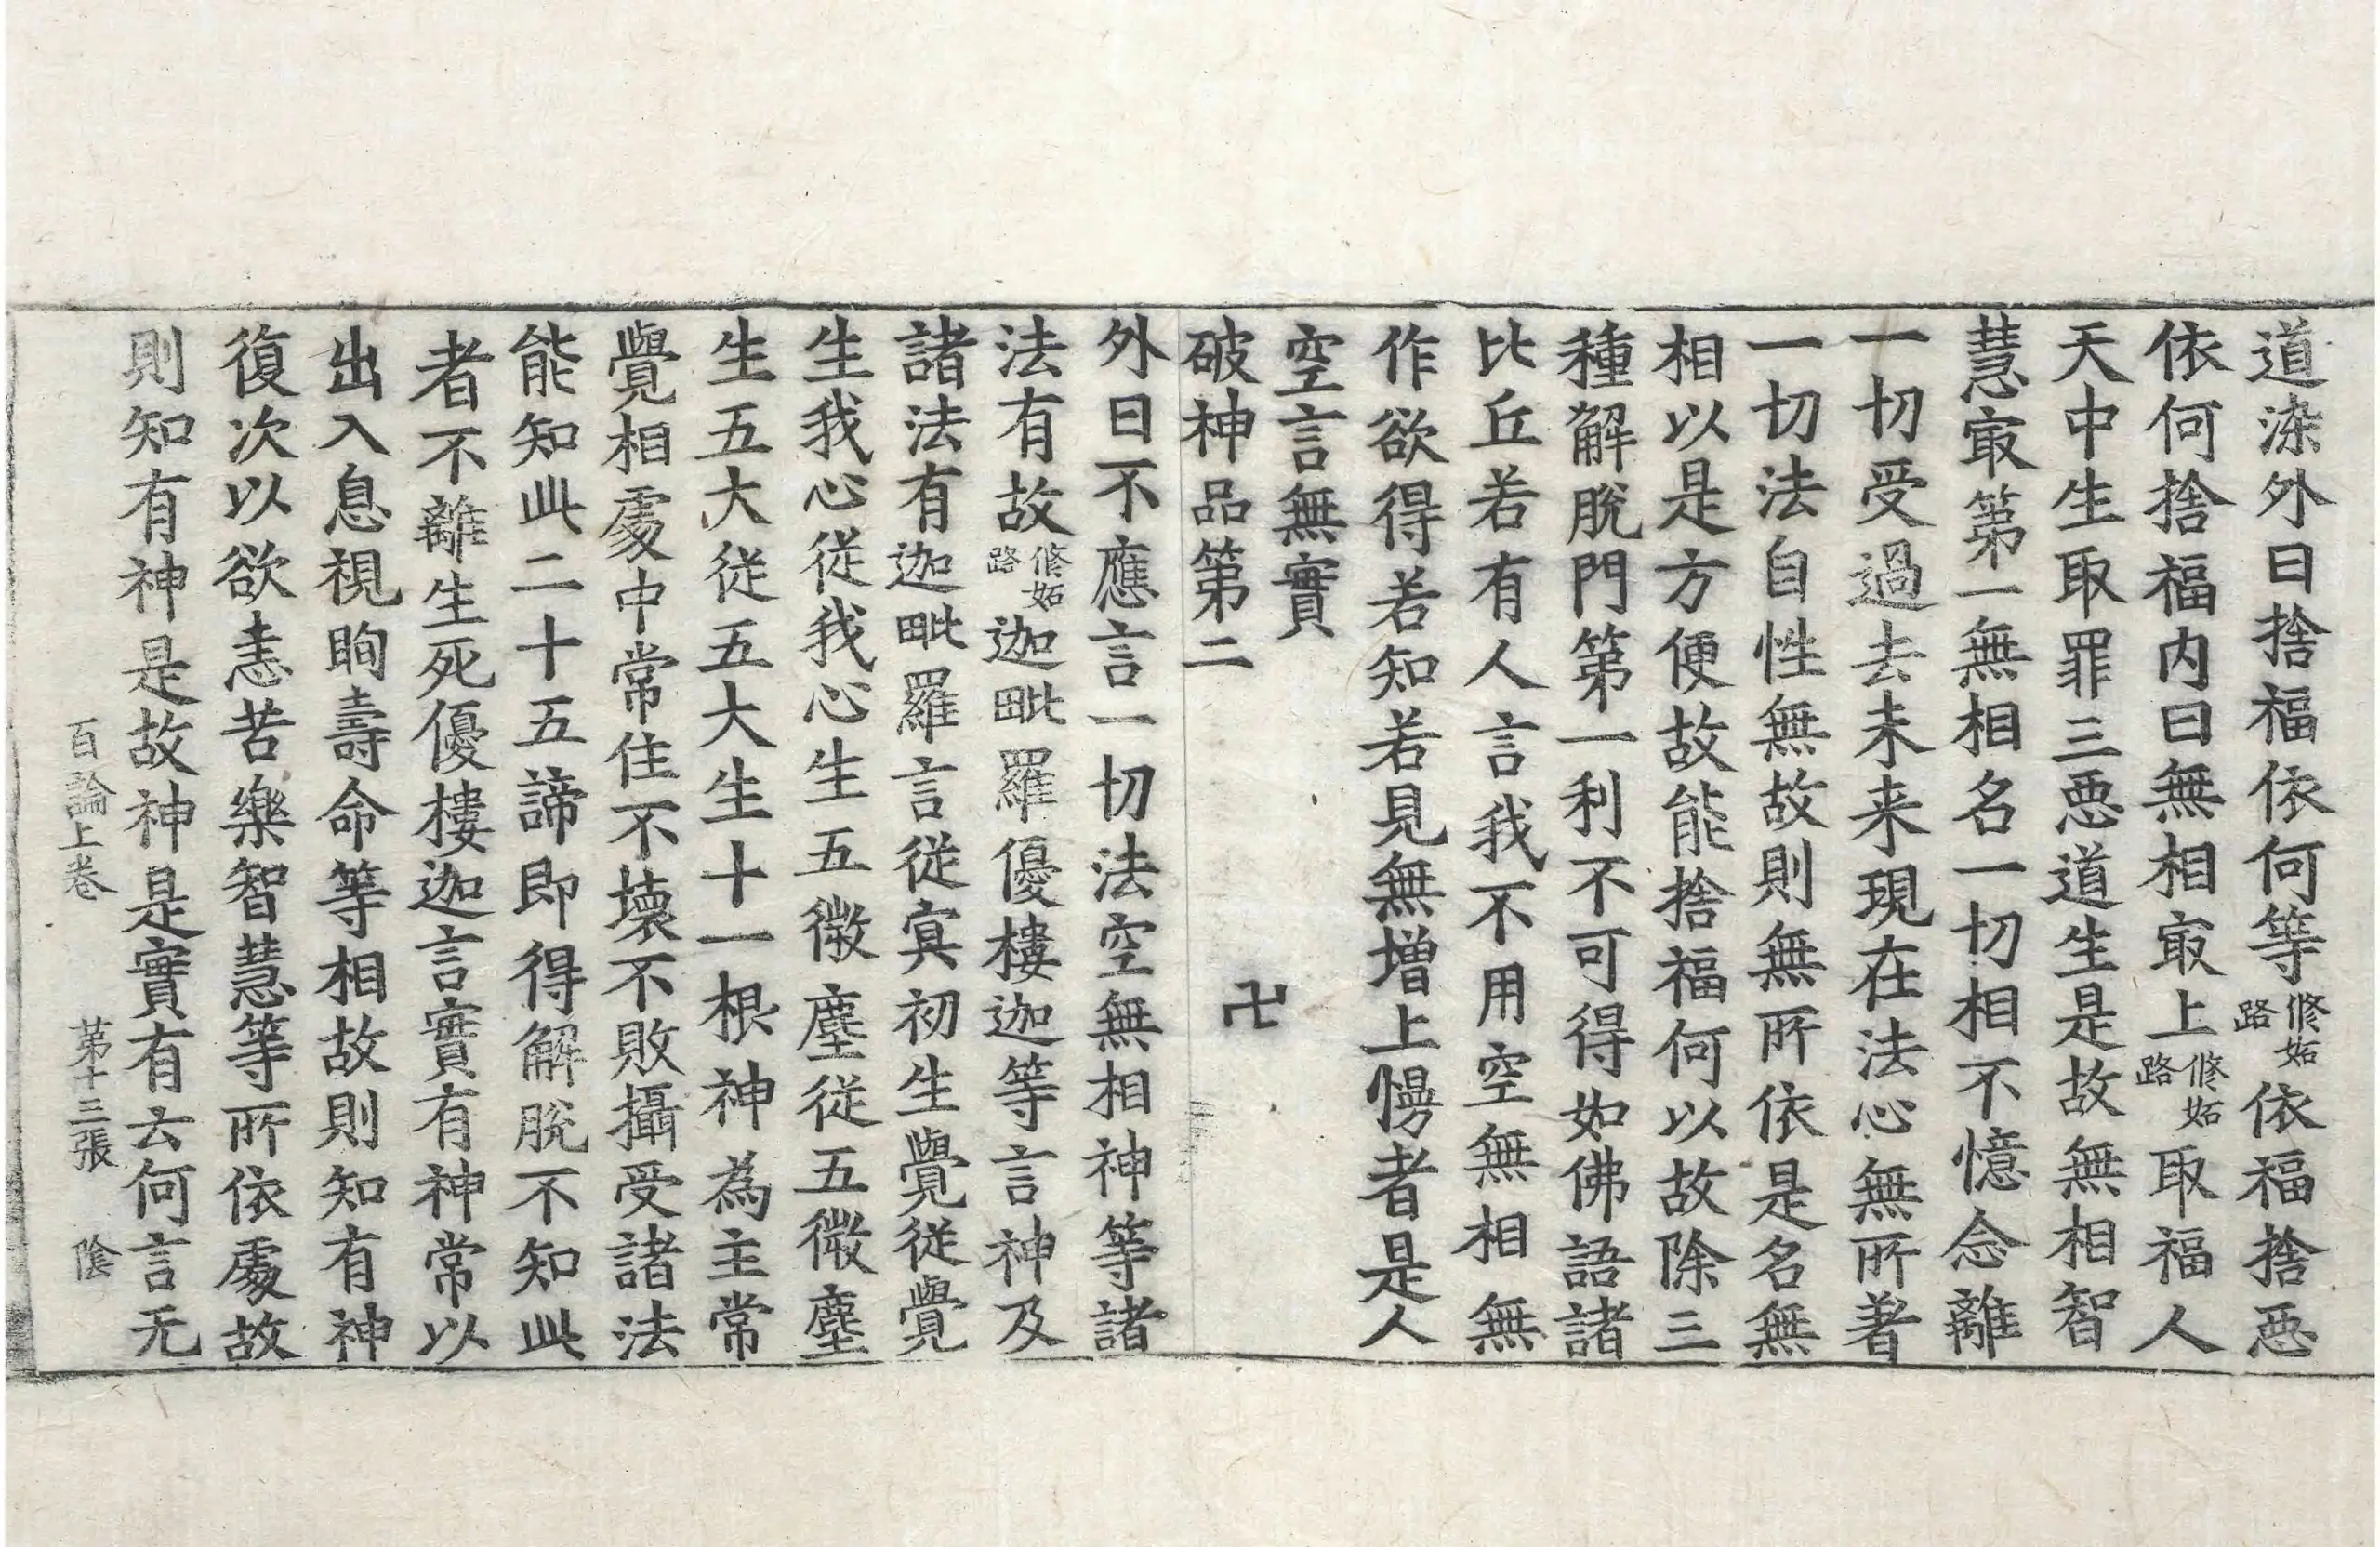 道染外曰捨福依何等修妬路依福捨惡
依何捨福内曰無相㝡上修妬路取福人
天中生取罪三惡道生是故無相智
慧㝡第一無相名一切相不憶念離
一切受過去未来現在法心無所著
一切法自性無故則無所依是名無
相以是方便故能捨福何以故除三
種解脫門第一利不可得如佛語諸
比丘若有人言我不用空無相無
作欲得若知若見無增上慢者是人
空言無實
破神品第二 卍
外曰不應言一切法空無相神等諸
法有故修妬路迦毗羅優樓迦等言神及
諸法有迦毗羅言從冥初生覺從覺
生我心從我心生五微塵從五微塵
生五大從五大生十一根神為主常
覺相處中常住不壞不敗攝受諸法
能知此二十五諦即得解脫不知此
者不離生死優樓迦言實有神常以
出入息視眴壽命等相故則知有神
復次以欲恚苦樂智慧等所依處故
則知有神是故神是實有云何言无
百論上卷 第十三張 陰